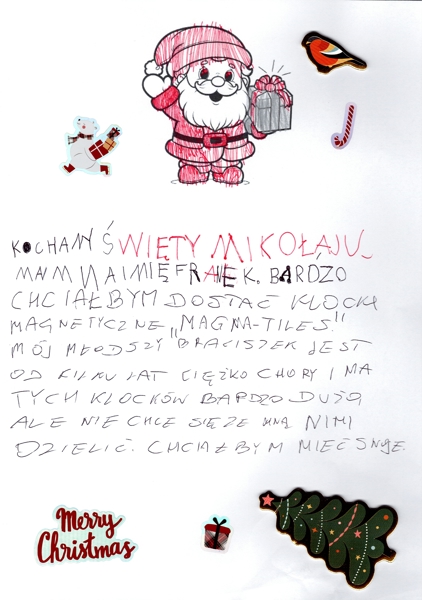 KOCHANY ŚWIĘTY MIKOŁAJU
MAM NA IMIĘ FRANEK. BARDZO
CHCIAŁBYM DOSTAĆ KLOCKI
MAGNETYCZNE „MAGNA-TILES".
MÓJ MŁODSZY BRACISZEK JEST
OD KILKU LAT CIĘŻKO CHORY I MA
TYCH KLOCKÓW BARDZO DUŻO,
ALE NIE CHCE SIĘ ZE MNĄ NIMI
DZIELIĆ. CHCIAŁBYM MIEĆ SWOJE.
Merry
Christmas